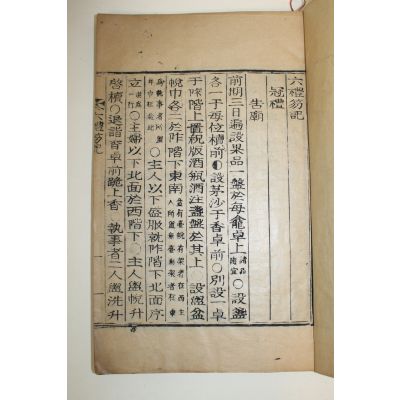 六禮笏記
冠禮
告廟
前期三日遍設果品一盤於每龕卓上諸品隨宜○設盞
各一于每位櫝前○設茅沙于香卓前○別設一卓
于阼階上置祝版酒瓶酒注盞盤於其上 設盥盆
帨巾各二於阼階下東南
爲執事者所盥
○主人以下盛服就阼階下北面序
立○主婦以下北面於西階下○主人盥帨升
啓櫝○退詣香卓前跪上香 執事者二人盥洗升
六禮笏記